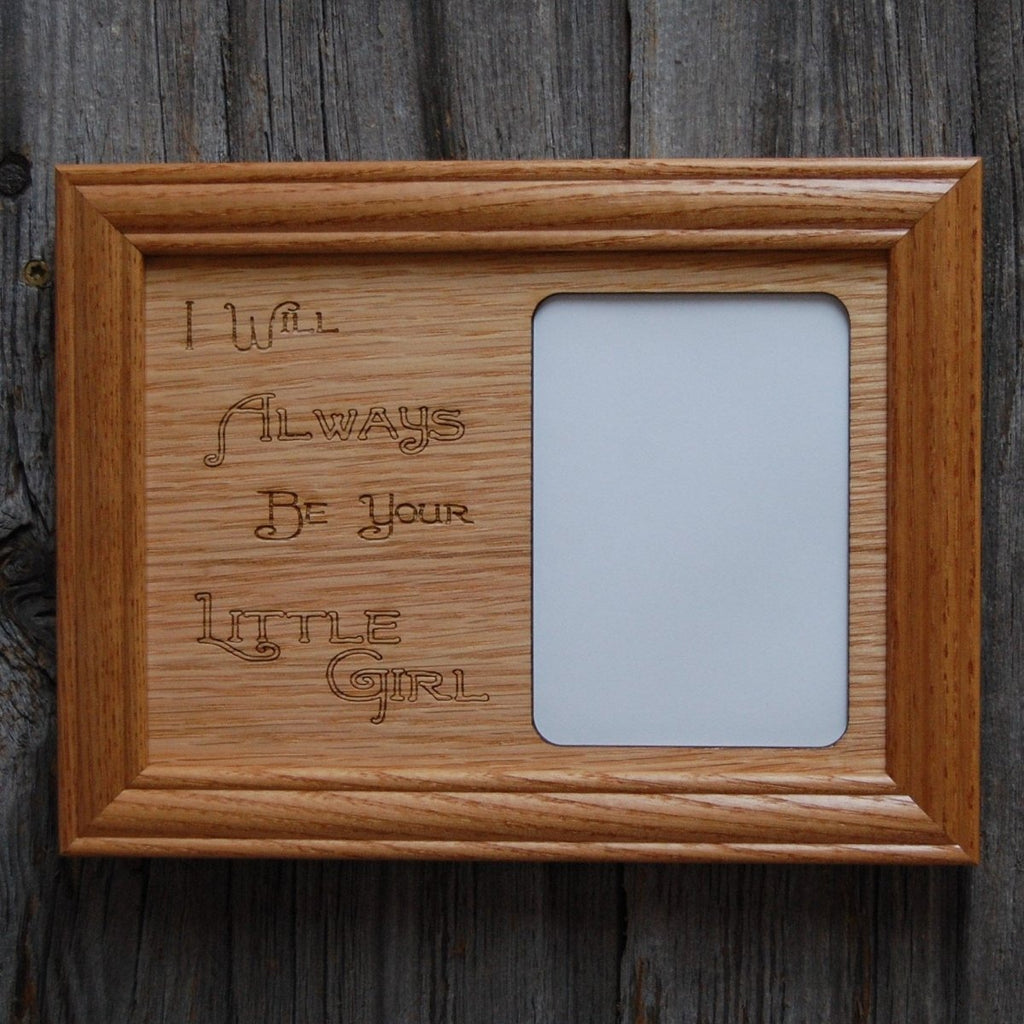 I Will
Always
Be Your
Little
Girl